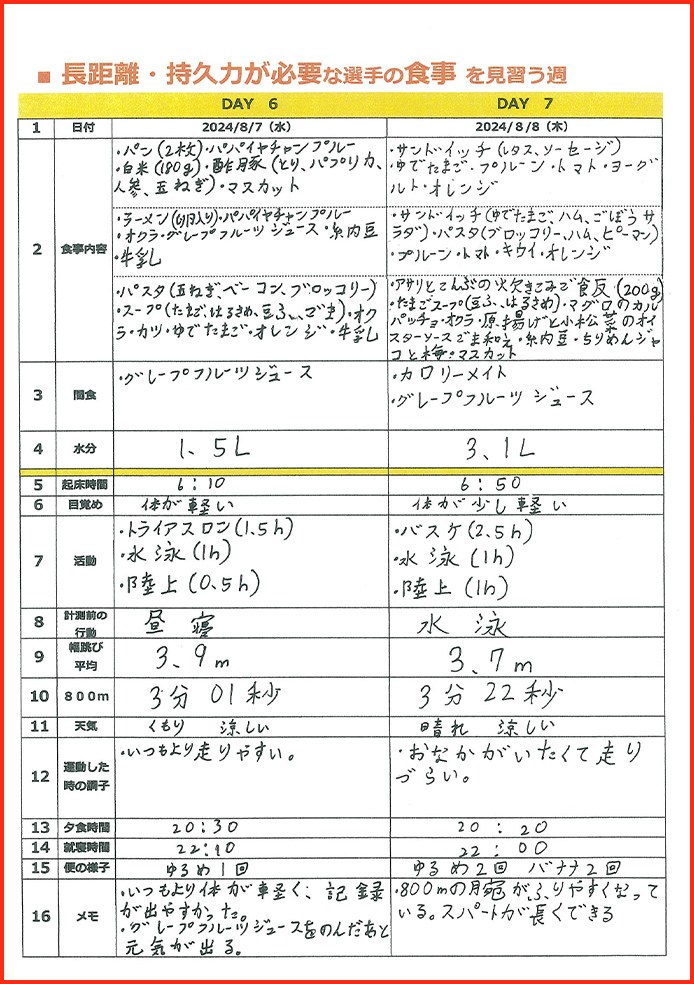 ■ 長距離・持久力が必要な選手の食事 を見習う週
DAY 6 DAY 7
1 日付 2024/8/7（水） 2024/8/8（木）
2 食事内容
・パン(2枚)・パパイヤチャンプルー
・白米(180g)・酢豚(とり、パプリカ、
人参、玉ねぎ)・マスカット
・サンドイッチ(レタス、ソーセージ)
・ゆでたまご・プルーン・トマト・ヨーグ
ルト・オレンジ
・ラーメン(肉入り)・パパイヤチャンプルー
・オクラ・グレープフルーツジュース・糸内豆
・牛乳
・サンドイッチ(ゆでたまご、ハム、ごぼうサ
ラダ)・パスタ(ブロッコリー、ハム、ピーマン)
・プルーン・トマト・キウイ・オレンジ
・パスタ(玉ねぎ、ベーコン、ブロッコリー)
・スープ(たまご、はるさめ、豆ふ、ごま)・オク
ラ・カツ・ゆでたまご・オレンジ・牛乳
・アサリとこんぶの火欠きこみご飯(200g)
・たまごスープ(豆ふ、はるさめ)・マグロのカル
パッチョ・オクラ・厚揚げと小松菜のオイ
スターソースごま和え・糸内豆・ちりめんジャ
コと梅・マスカット
3 間食
・グレープフルーツジュース
・カロリーメイト
・グレープフルーツジュース
4 水分 1.5L 3.1L
5 起床時間 6:10 6:50
6 目覚め 体が軽い 体が少し軽い
7 活動
・トライアスロン(1.5h)
・水泳(1h)
・陸上(0.5h)
・バスケ(2.5h)
・水泳(1h)
・陸上(1h)
8 計測前の
行動
昼寝 水泳
9 幅跳び
平均
3.9m 3.7m
10 800m 3分01秒 3分22秒
11 天気 くもり 涼しい 晴れ 涼しい
12 運動した
時の調子
・いつもより走りやすい。
・おなかがいたくて走り
づらい。
13 夕食時間 20:30 20:20
14 就寝時間 22:10 22:00
15 便の様子 ゆるめ1回 ゆるめ2回 バナナ2回
16 メモ
・いつもより体が軽く、記録
が出やすかった。
・グレープフルーツジュースをのんだあと
元気が出る。
・800mの腕がふりやすくなって
いる。スパートが長くできる